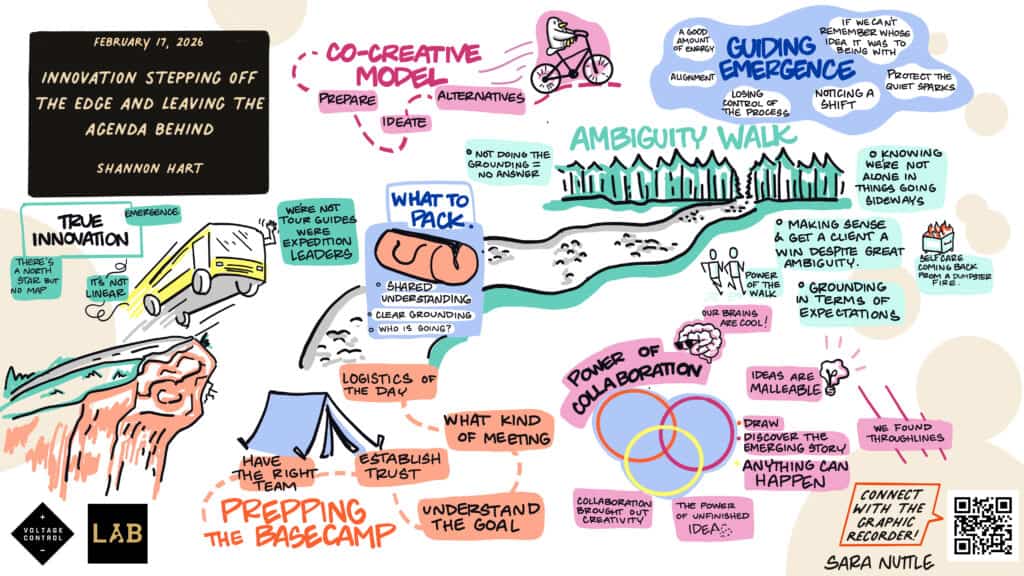 FEBRUARY 17, 2026
INNOVATION STEPPING OFF
THE EDGE AND LEAVING THE
AGENDA BEHIND
SHANNON HART
CO-CREATIVE
MODEL
PREPARE
IDEATE
ALTERNATIVES
GUIDING
EMERGENCE
A GOOD
AMOUNT
OF ENERGY
IF WE CAN'T
REMEMBER WHOSE
IDEA IT WAS TO
BEING WITH
ALIGNMENT
LOSING
CONTROL OF
THE PROCESS
NOTICING A
SHIFT
PROTECT THE
QUIET SPARKS
AMBIGUITY WALK
NOT DOING THE
GROUNDING =
NO ANSWER
KNOWING
WE'RE NOT
ALONE IN
THINGS GOING
SIDEWAYS
MAKING SENSE
& GET A CLIENT A
WIN DESPITE GREAT
AMBIGUITY.
GROUNDING
IN TERMS OF
EXPECTATIONS
SELF CARE
COMING BACK
FROM A DUMPSTER
FIRE.
POWER
OF THE
WALK
TRUE
INNOVATION
EMERGENCE
THERE'S
A NORTH
STAR BUT
NO MAP
IT'S NOT
LINEAR
WE'RE NOT
TOUR GUIDES
WERE
EXPEDITION
LEADERS
WHAT TO
PACK.
SHARED
UNDERSTANDING
CLEAR GROUNDING
WHO IS GOING?
LOGISTICS OF
THE DAY
WHAT KIND
OF MEETING
HAVE
THE RIGHT
TEAM
ESTABLISH
TRUST
UNDERSTAND
THE GOAL
PREPPING
THE BASECAMP
OUR BRAINS
ARE COOL!
POWER OF
COLLABORATION
IDEAS ARE
MALLEABLE
DRAW
DISCOVER THE
EMERGING STORY
ANYTHING CAN
HAPPEN
WE FOUND
THROUGHLINES
COLLABORATION
BROUGHT OUT
CREATIVITY
THE POWER
OF UNFINISHED
IDEAS
VOLTAGE
CONTROL
LAB
CONNECT
WITH THE
GRAPHIC
RECORDER!
SARA NUTTLE